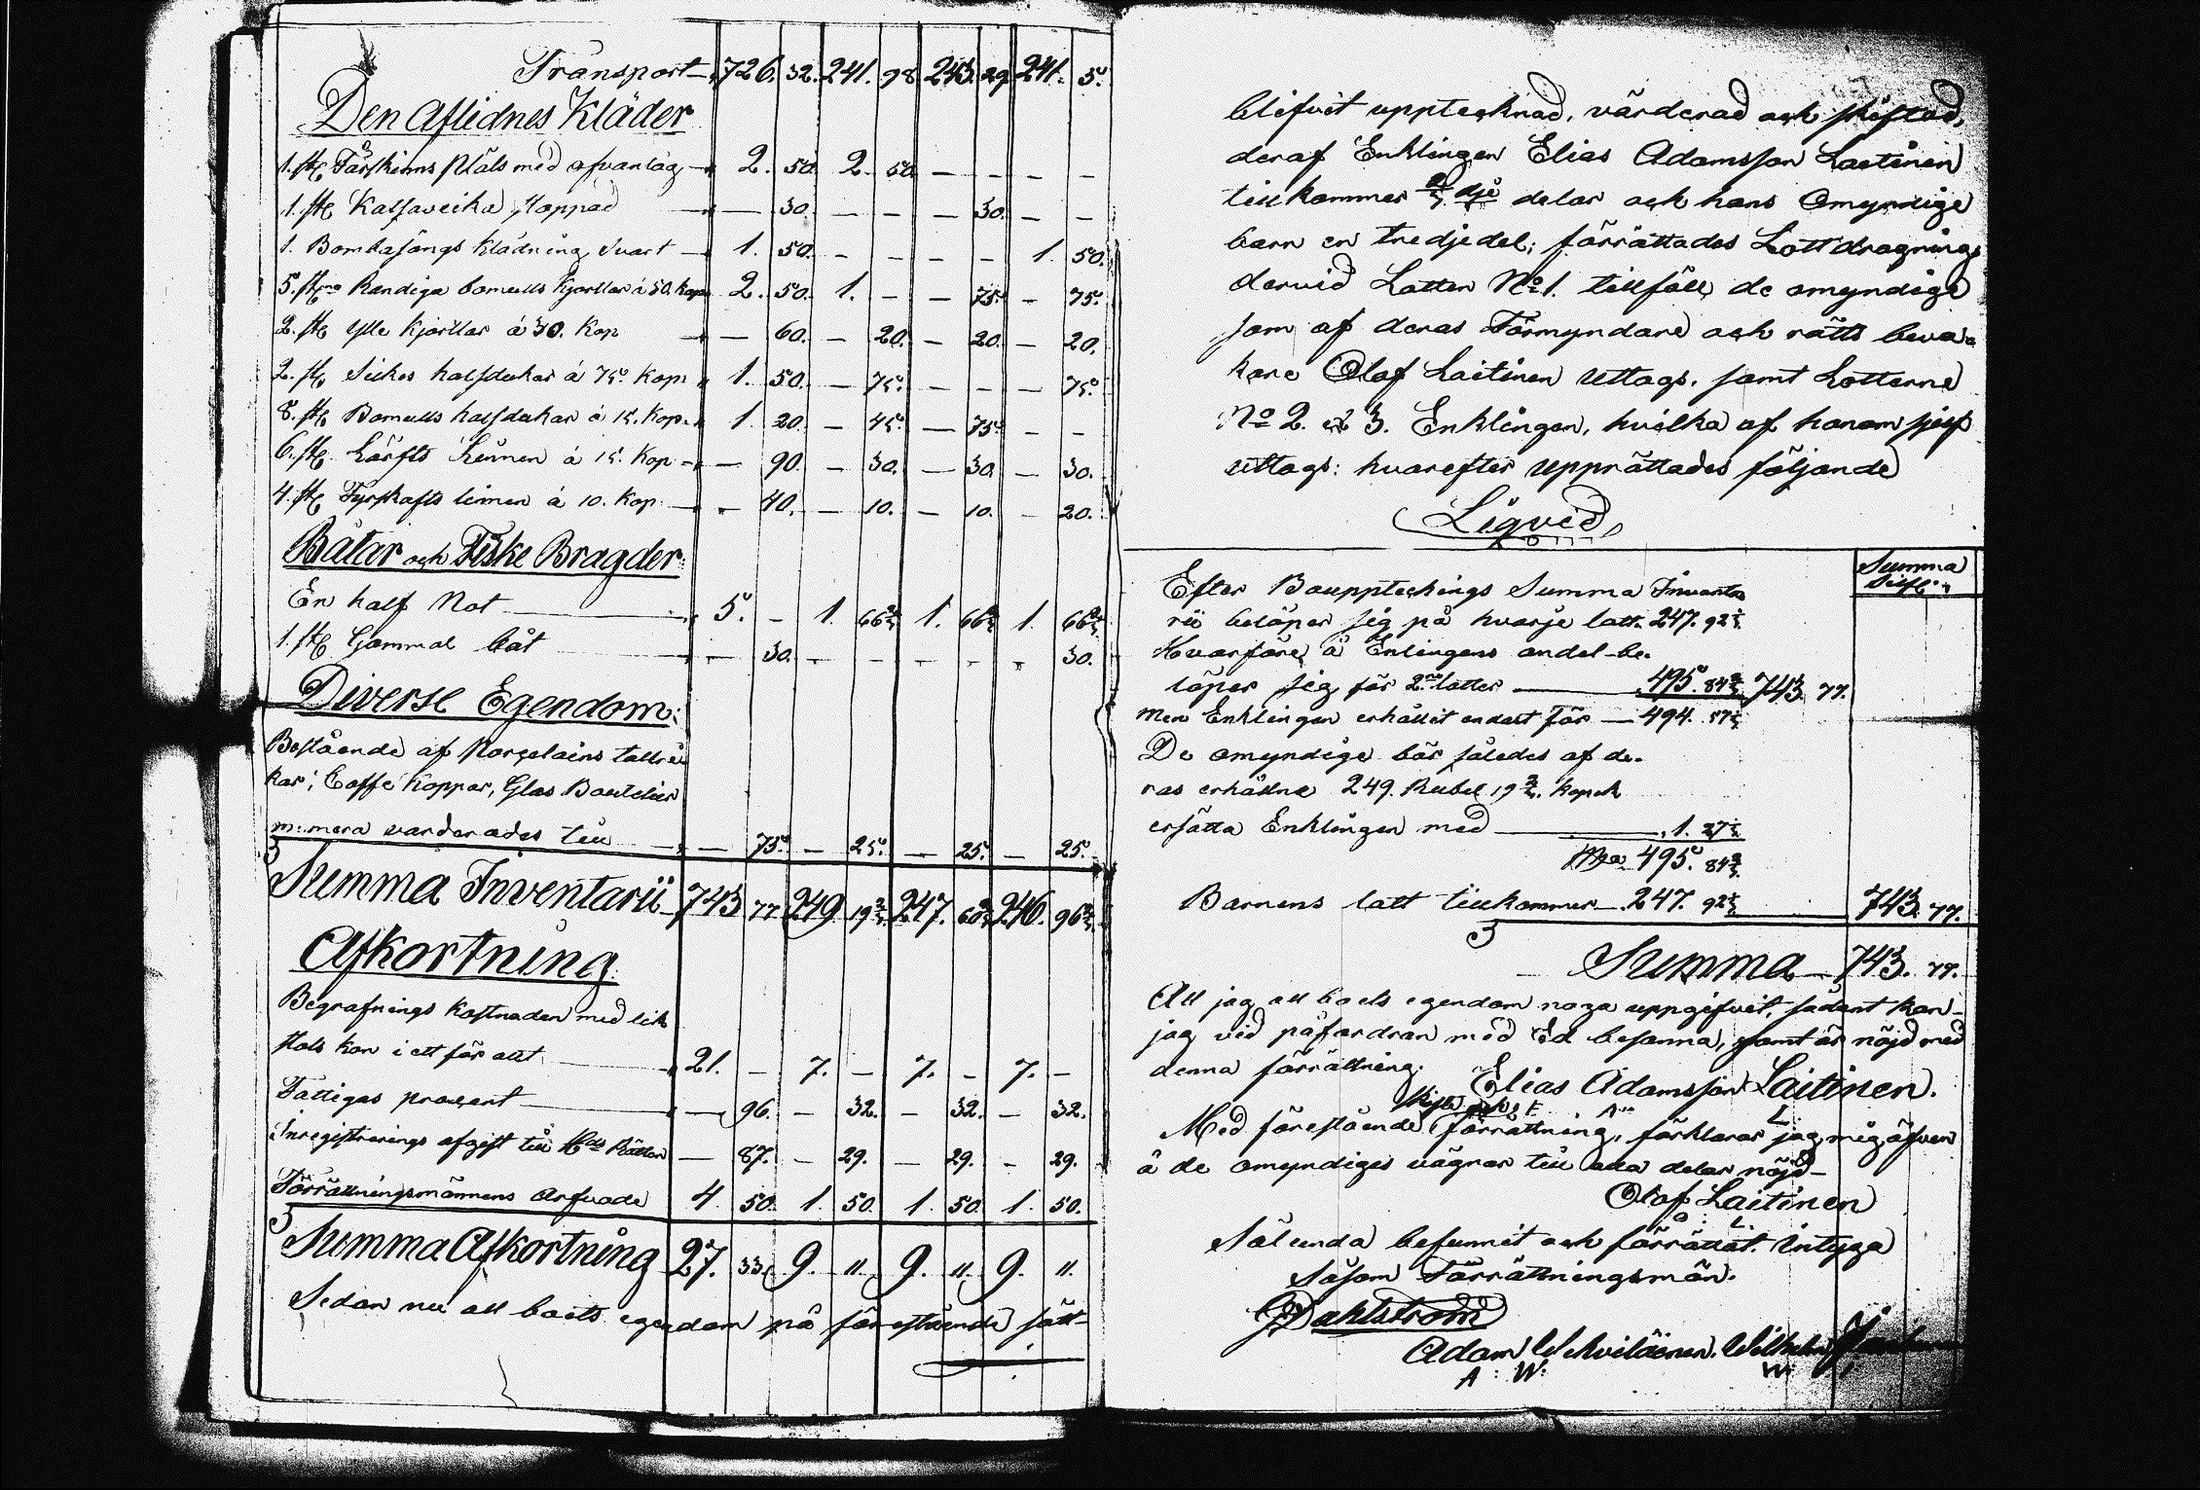 Transport 726. 32. 241. 98 243. 29 241. 5.
Den Aflidnes Kläder
1. st. Fårskinns Pläls med ofvanlag 2. 50. 2. 50. — — — —
1. st. Kalfaveika Koppad — 30. — — — 30. — —
1. Bombasångs Klädning Svart 1. 50. — — — — 1. 50.
5. st. Randiga bomulls Kjortlar á 50. Kop 2. 50. 1. — — 75. — 75.
2. st. Ylle Kjortlar á 30. Kop — 60. — 20. — 20. — 20.
2. st. Silkes halsdukar á 75. Kop. 1. 50. — 75. — — — 75.
8. st. Bomulls halsdukar á 15. Kop. 1. 20. — 45. — 75. — —
6. st. Lärfts Linnen á 15. Kop — 90. — 30. — 30. — 30.
4. st. Fyrskafts linnen á 10. Kop — 40. — 10. — 10. — 20.
Båtar och Fiske Bragder
En half Not 5. — 1. 66⅔ 1. 66⅔ 1. 66⅔
1. st. Gammal båt — 30. — — — — — 30.
Diverse Egendom:
Bestående af Porcelains tallri
kar, Caffe Koppar, Glas Bouteiller
m: mera värderades till — 75. — 25. — 25. — 25.
Summa Inventarii 743 77 249. 19⅔ 247. 60⅔ 246. 96⅔
Afkortning
Begrafnings Kostnaden med lik
stols kon i ett för allt 21. — 7. — 7. — 7. —
Fattigas procent — 96. — 32. — 32. — 32.
Inregistrerings afgift till Hds Rätten — 87. — 29. — 29. — 29.
Förrättningsmännens Arfvode 4. 50. 1. 50. 1. 50. 1. 50.
Summa Afkortning 27. 33. 9. 11. 9. 11. 9. 11.
Sedan nu all boets egendom på förestående sätt
blifvit upptecknad, värderad och skiftad,
deraf Enklingen Elias Adamsson Laitinen
tillkommer ⅔ dje delar och hans Omyndige
barn en tredjedel; förrättades Lottdragning
dervid Lotten No 1. tillföll de omyndige
som af deras Förmyndare och rätts beva-
kare Olof Laitinen uttogs, samt Lotterne
No 2. et 3. Enklingen, hvilka af honom sjelf
uttogs: hvarefter upprättades följande
Liqvid
Summa
Silf:
Efter Bouppteckings Summa Inventa
rii belöper sig på hvarje lott. 247. 92⅓.
Hvarföre å Enlingens andel be-
löper sig för 2ne lotter 495. 84⅔ 743. 77.
Men Enklingen erhållit endast för 494. 57⅓
De omyndige bör således af de-
ras erhållne 249. Rubel 19⅔. Kopek
ersätta Enklingen med 1. 27⅓
495. 84⅔
Barnens lott tillkommer 247. 92⅓ 743. 77.
Summa 743. 77.
Att jag all boets egendom noga uppgifvit, sådant kan
jag vid påfordran med Ed besanna, samt är nöjd med
denna förrättning. Elias Adamsson Laitinen.
Med förestående förrättning, förklarar jag mig äfven
å de omyndiges vägnar till alla delar nöjd
Olof Laitinen
O. L.
Sålunda befunnit och förrättat. Intyga
Såsom Förrättningsmän.
Dahlström
Adam Wilhelm
A: W: W: